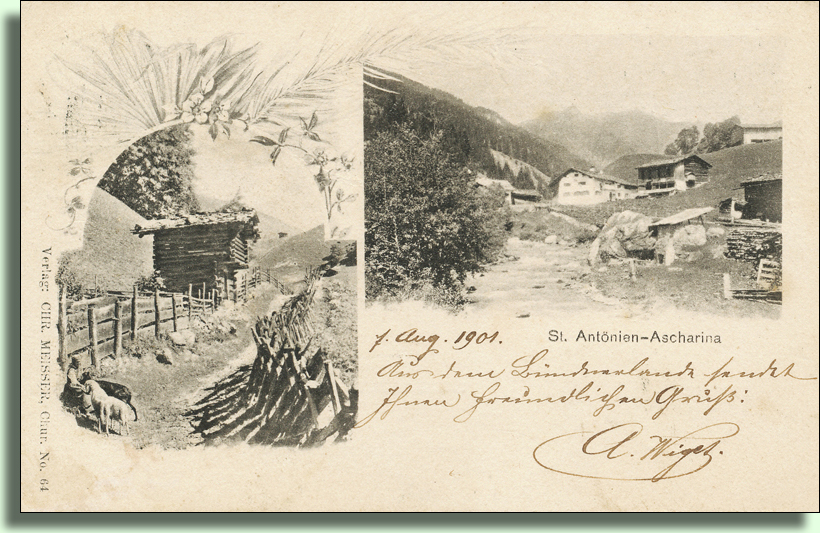 St. Antönien-Ascharina
7. Aug. 1901.
Aus dem Bündnerlande sendet
Ihnen freundlichen Gruß:
A. Wiget.
Verlag: CHR. MEISSER, Chur. No. 64